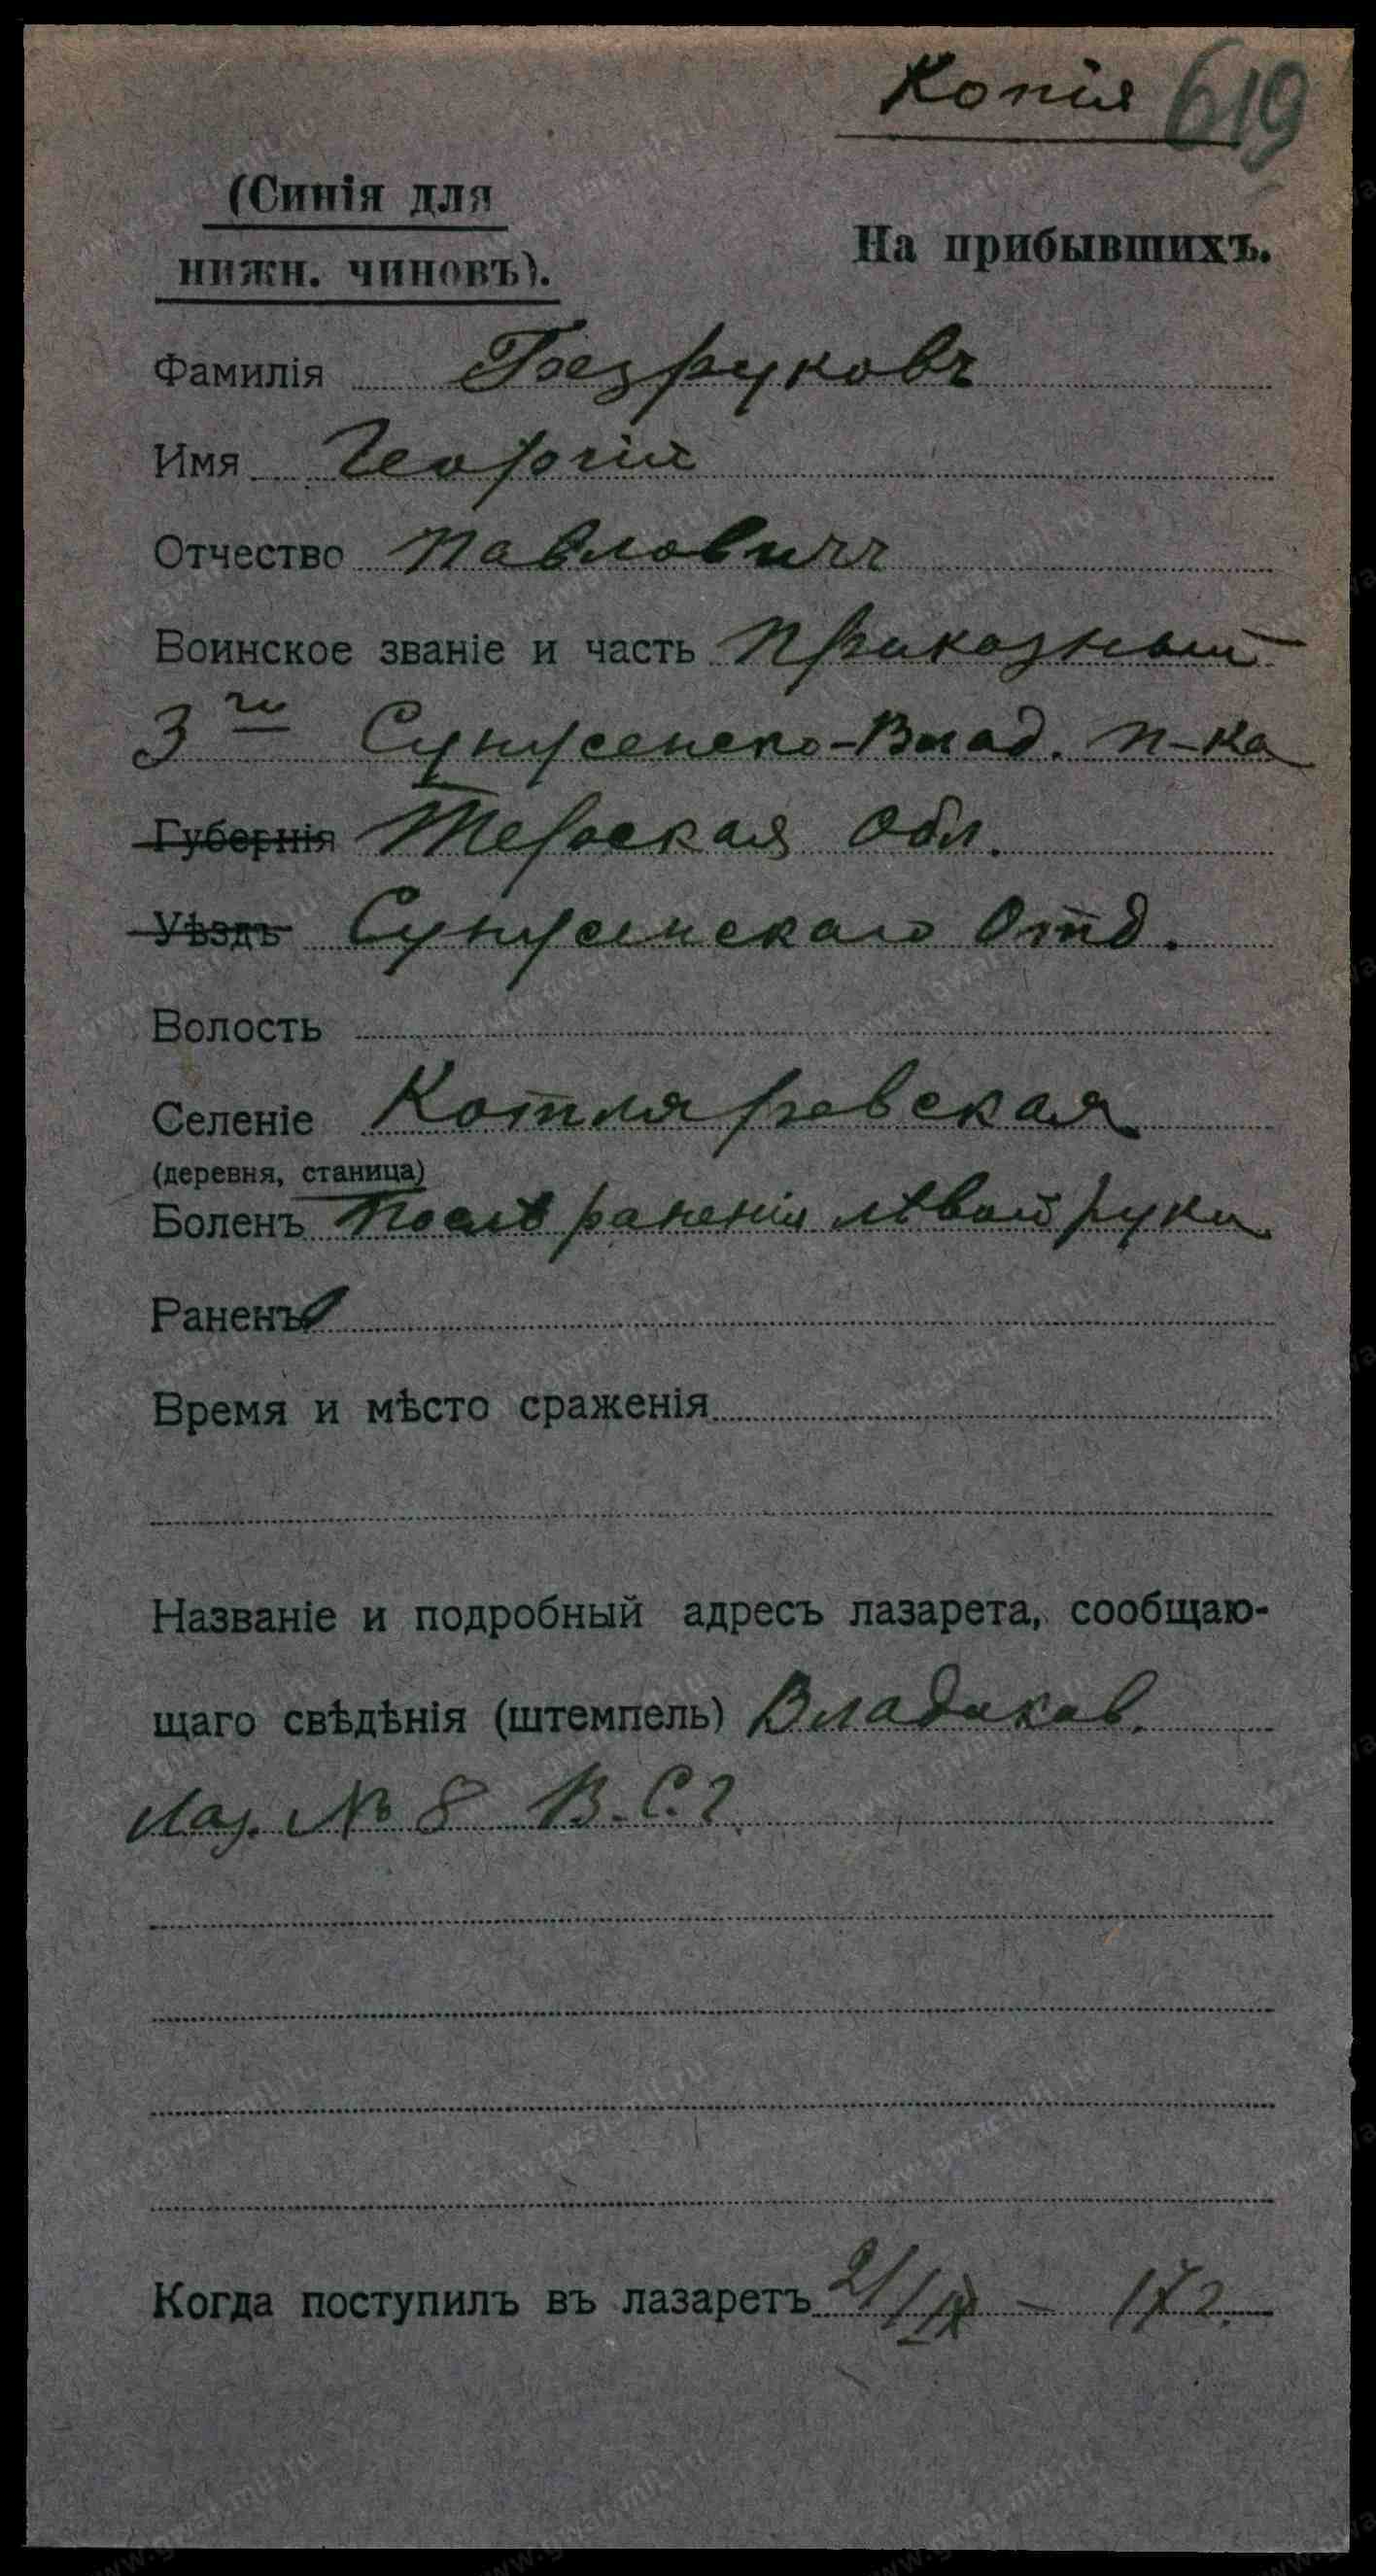 Копія 619
(Синія для
нижн. чиновъ).
На прибывшихъ.
Фамилія Безруковъ
Имя Георгій
Отчество Павловичъ
Воинское званіе и часть Приказный
3го Сунженско-Влад. п-ка
Губернія Терская Обл.
Уѣздъ Сунженскаго Отд.
Волость
Селеніе Котляревская
(деревня, станица)
Боленъ Послѣ раненія лѣвой руки
Раненъ
Время и мѣсто сраженія
Названіе и подробный адресъ лазарета, сообщаю-
щаго свѣдѣнія (штемпель) Владикав.
Лаз. № 8 В.С.Г.
Когда поступилъ въ лазаретъ 21/IX - 17 г.